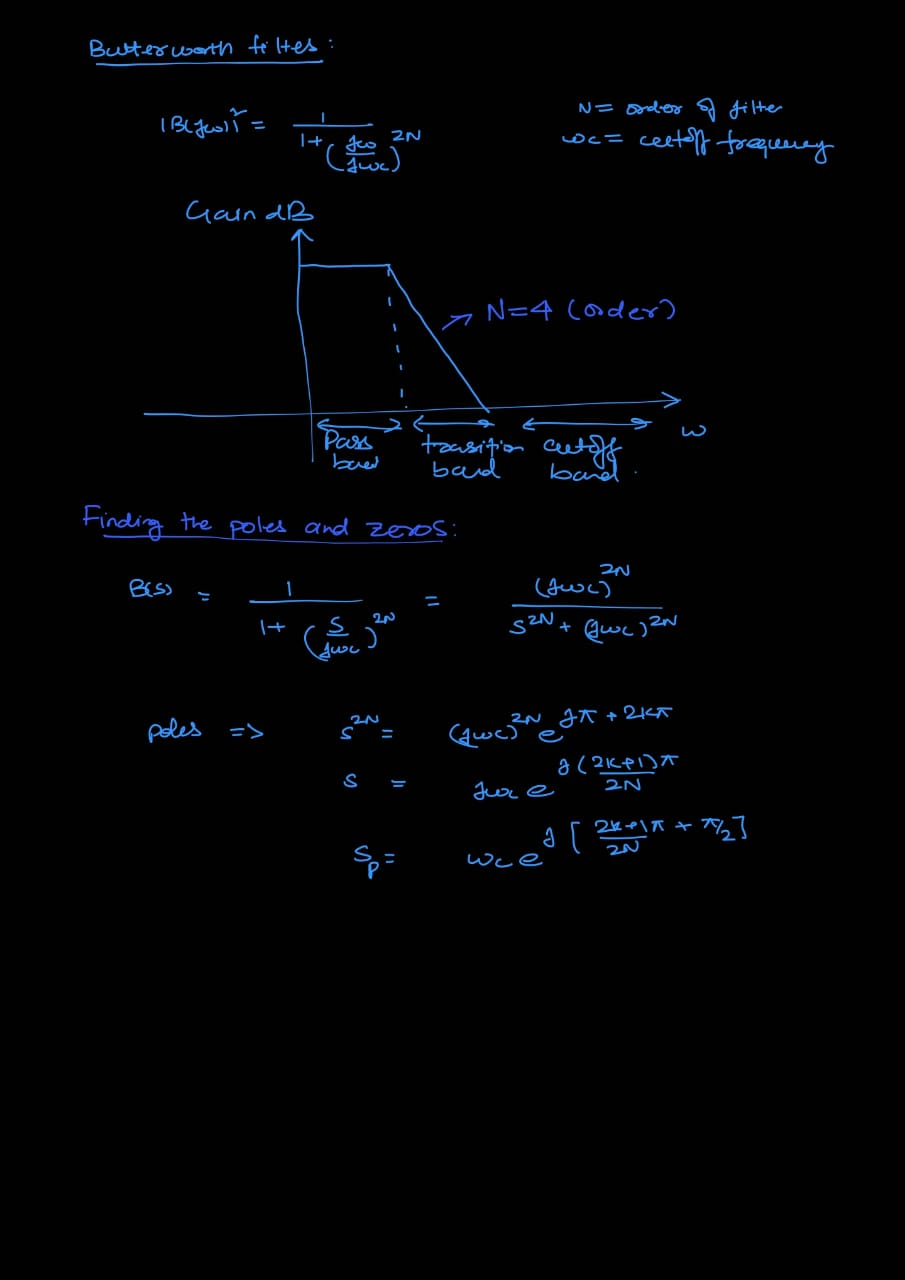 Butterworth filtes :
|B(jω)|² = 1 / (1 + (jω/jωc)^2N)
N = order of filter
ωc = cutoff frequency
Gain dB
N=4 (order)
ω
Pass band
transition band
cutoff band .
Finding the poles and zeros :
B(s) = 1 / (1 + (s/jωc)^2N) = (jωc)^2N / (s^2N + (jωc)^2N)
poles => s^2N = (jωc)^2N e^(jπ + 2kπ)
s = jωc e^(j(2k+1)π/2N)
Sp = ωc e^(j[(2k+1π)/2N + π/2])